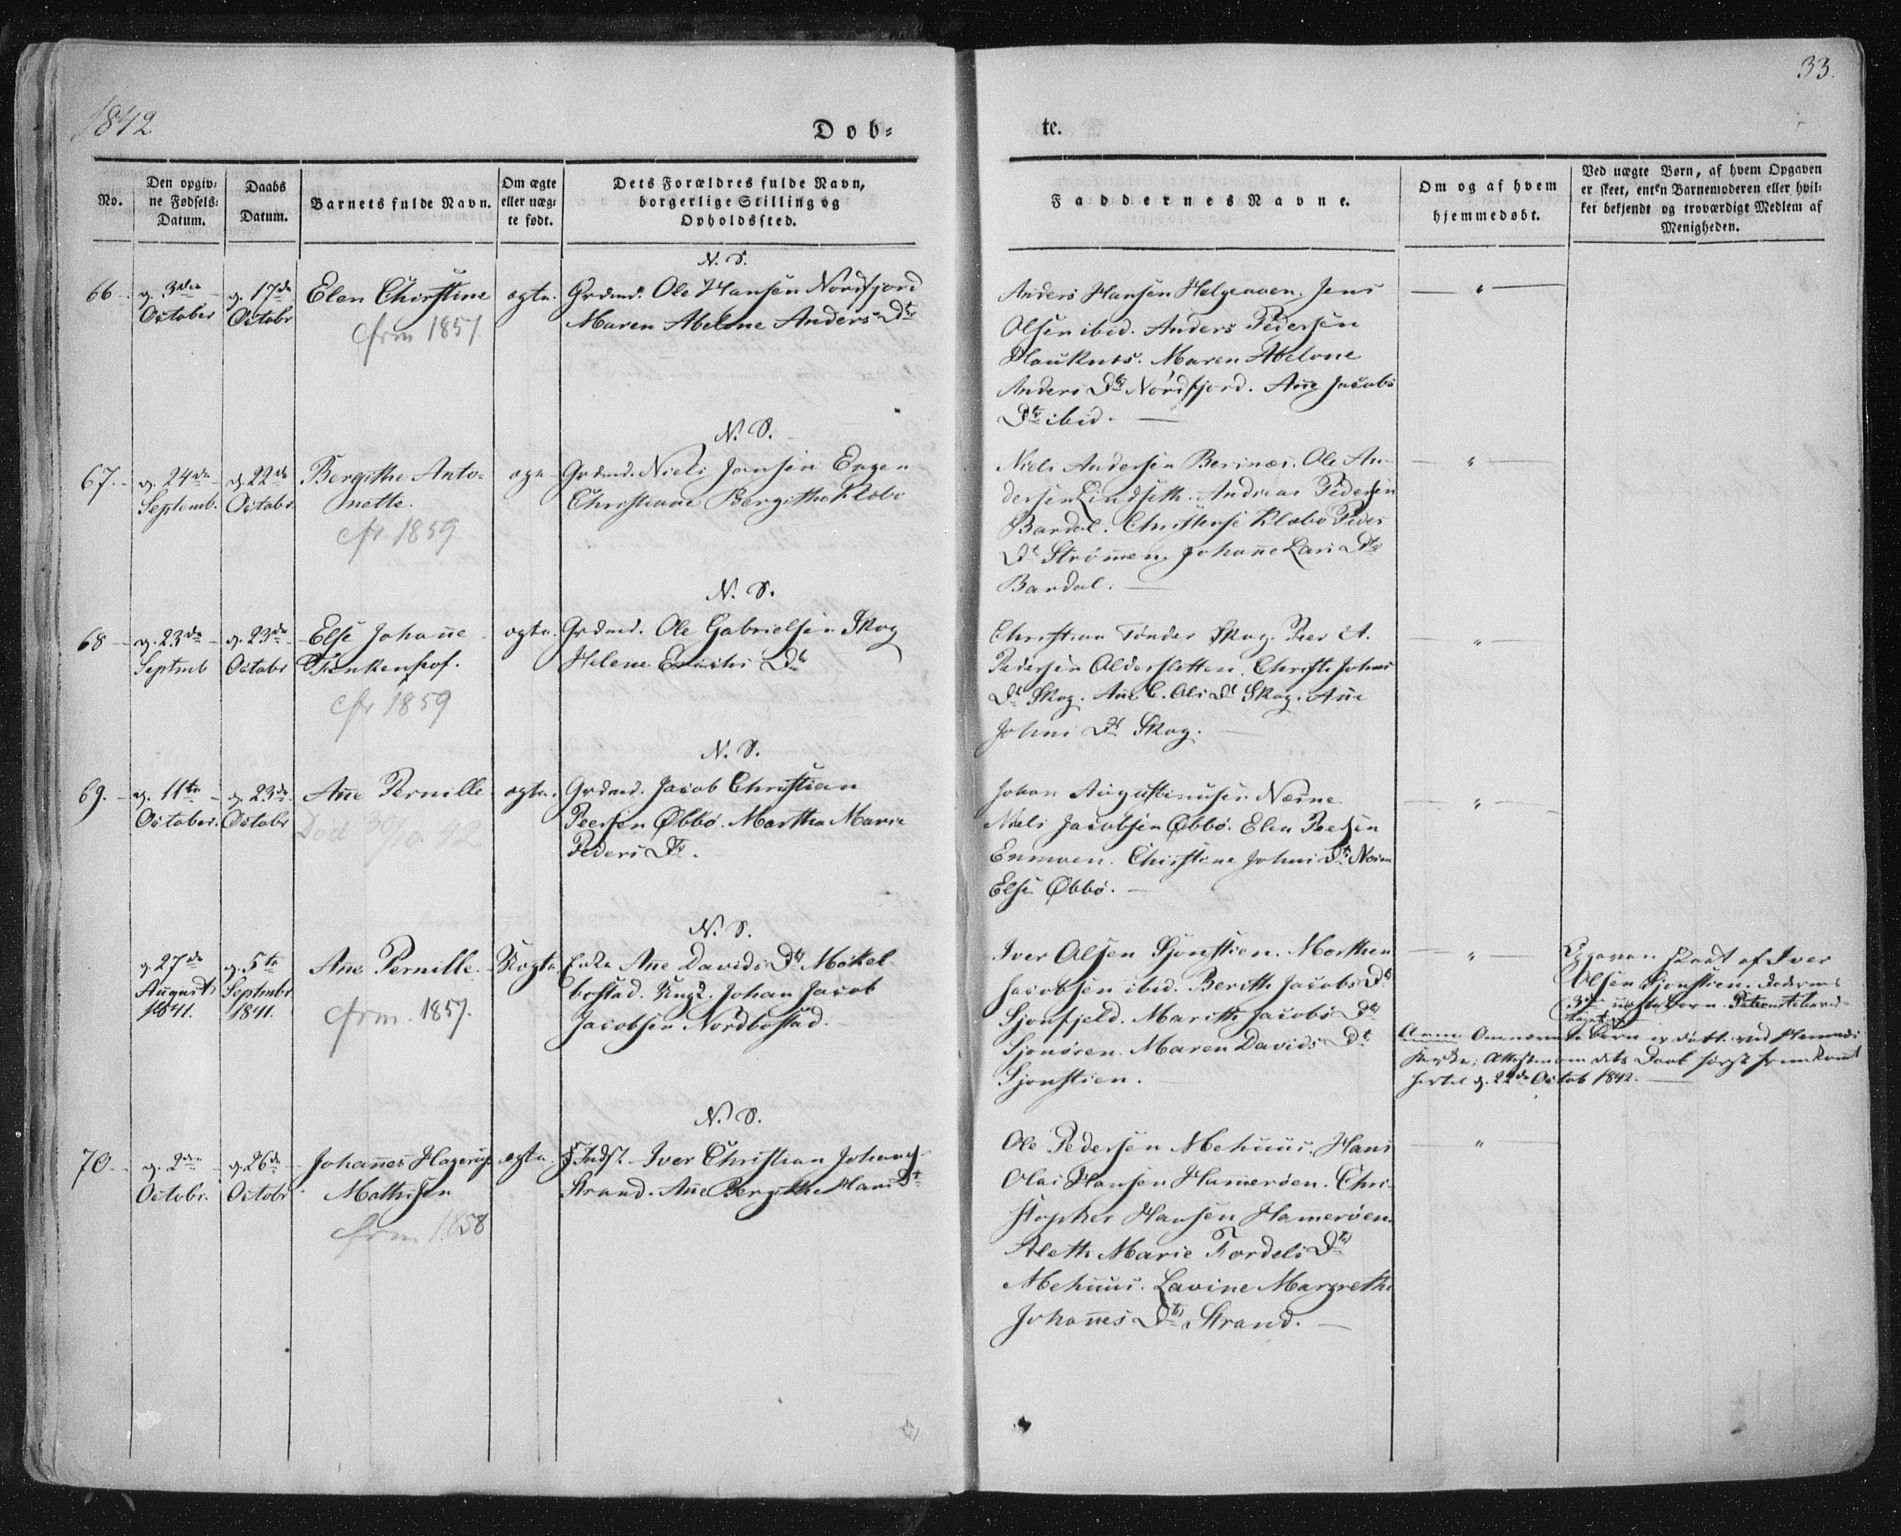 1842
33.
Døb-
te.
No.
Den opgiv-
ne Fødsels-
Datum.
Daabs
Datum.
Barnets fulde Navn.
Om ægte
eller uæg-
te født.
Dets Forældres fulde Navn,
borgerlige Stilling og
Opholdssted.
Faddernes Navne.
Om og af hvem
hjemmedøbt.
Ved uægte Børn, af hvem Opgaven
er skeet, enten Barnemoderen eller hvil-
ket bekjendt og troværdigt Medlem af
Menigheden.
N. S.
66
d. 3die
October
d. 17de
Octobr
Elen Christine
Cfrm 1857.
ægte.
Grdmd. Ole Hansen Nordfjord
Maren Abelone Anders Dtr
Anders Hansen Helgeaaen. Jens
Olsen ibid. Anders Pedersen
Hauknes. Maren Abelone
Anders Dtr Nordfjord. Ane Jacobs
Dtr ibid.
"
N. S.
67.
d. 24de
Septemb.
d. 22de
Octobr
Bergithe Anto-
nette.
cfr 1859
ægte
Grdmd. Niels Jansen Engen
Christiane Bergitha Klæbo
Niels Andersen Besinæs. Ole An-
dersen Lindseth. Andreas Pedersen
Bardal. Christense Klæbo Peders
Dt Strømmen. Johanne Lars Dtr
Bardal.
"
N. S.
68
d. 23de
Septmb
d. 23de
Octobr
Else Johanne
Frenkenhof.
cfr 1859
ægte.
Grdmd. Ole Gabrielsen Skog
Helene Erichs Dtr
Christian Tønder Skog. Peer A.
Pedersen Aldersletten. Christe Johns
Dt Skog. Ane C. Ols Dt Skog. Ane
Johns Dt Skog.
"
N. S.
69.
d. 11te
October.
d. 23de
Octobr
Ane Pernille
Død 30/10 42
ægte.
Grdmd. Jacob Christian
Peersen Øbbø. Martha Marie
Peders Dtr.
Johan Augustinusen Næsne.
Niels Jacobsen Øbbø. Elen Peersen
Enmoen. Christine Johns Dtr Næsne
Else Øbbø.
"
N. S.
d. 27de
August
1841.
d. 5te
Septmbr
1841.
Ane Pernille.
Cfrm. 1857.
Uægte.
Enke Ane Davids Dtr Mækel
bostad. Ungk. Johan Jacob
Jacobsen Nordbostad.
Iver Olsen Sjonstien. Morthen
Jacobsen ibid. Berith Jacobs Dtr
Sjonfjeld. Marith Jacobs Dtr
Sjonøren. Maren Davids Dt
Sjonstien.
"
Opgaven skeet af Iver
Olsen Sjonstien. Faderens
3die uægte Barn.
Anm. Ommeldte Barn er døbt ved Hemnæs
Kirke; Attesten om dets Daab først fremkomt
hertil d. 22de Octob 1842.
N. S.
70.
d. 2den
Octobr.
d. 26de
Octobr
Johannes Hagerup
Mathisen
Cfrm 1858
ægte.
Indst. Iver Christian Johans
Strand. Ane Bergithe Hans Dt
Ole Pedersen Mehuus. Hans
Olai Hansen Hamerøen. Chri-
stopher Hansen Hamerøen.
Aleth Marie Tordels Dtr
Mehuus. Lavine Margrethe
Johannes Dtr Strand.
"